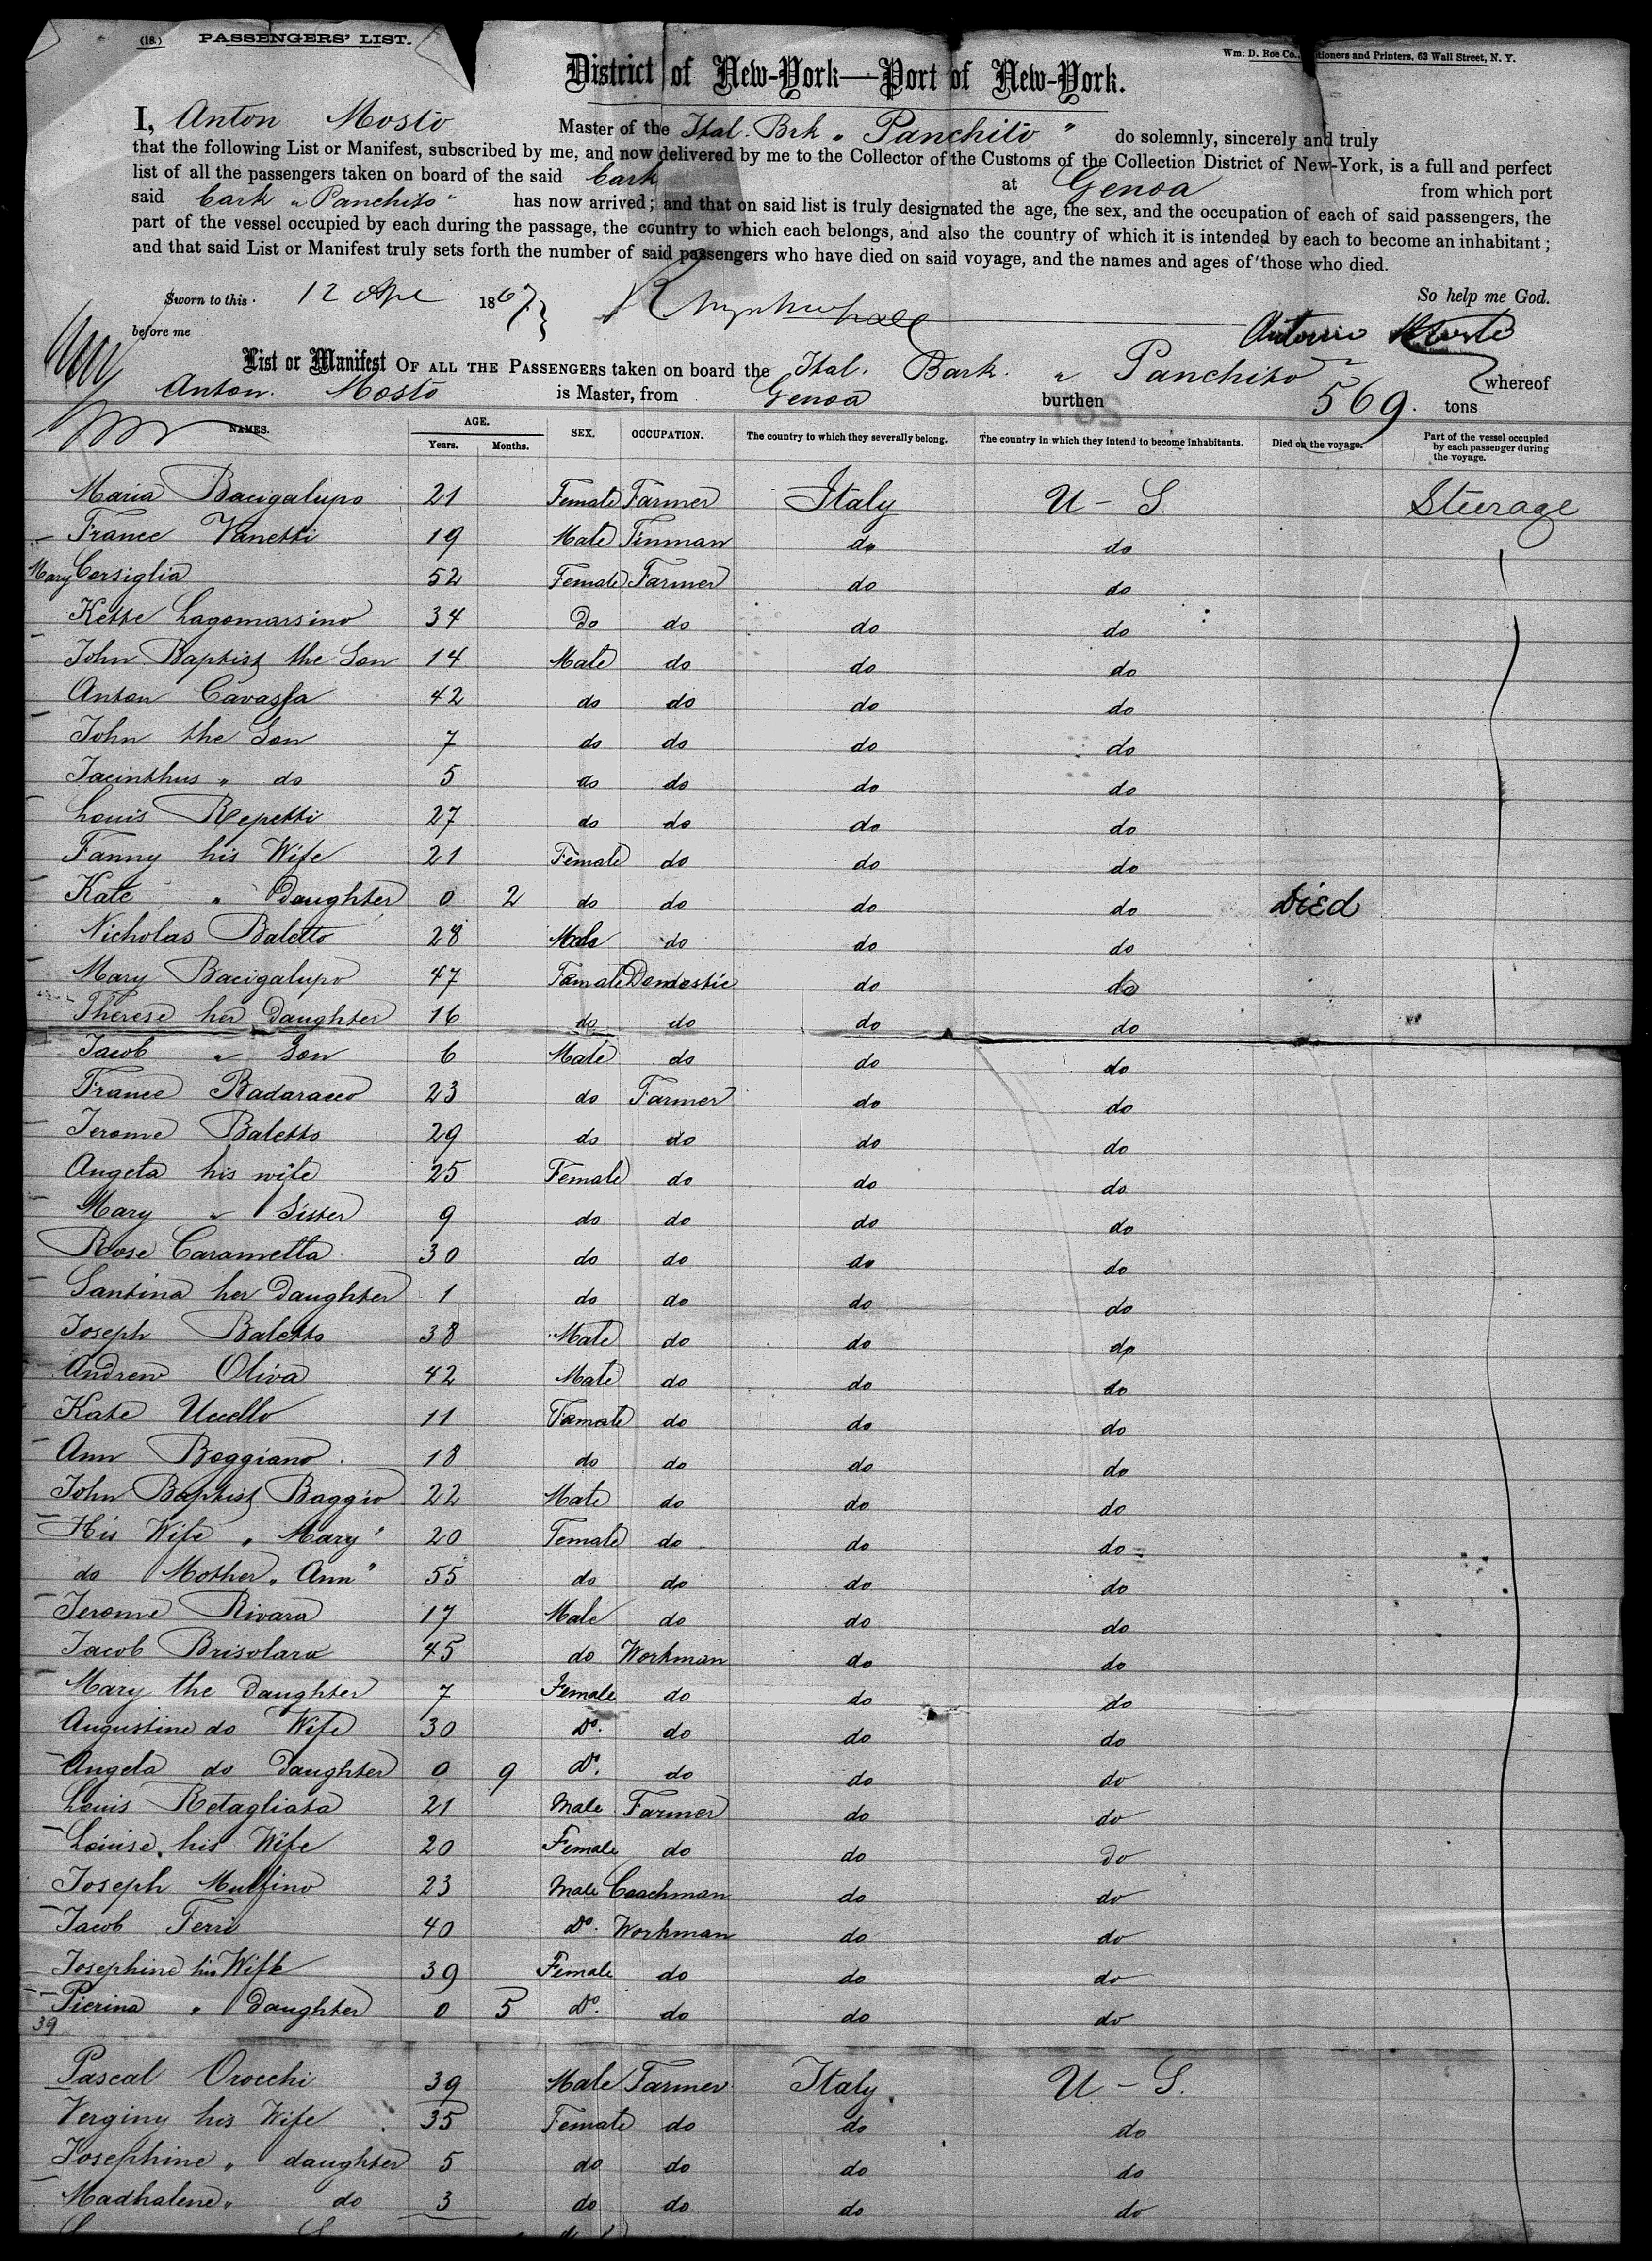 (18.) PASSENGERS' LIST.
Wm. D. Roe Co., tioners and Printers, 63 Wall Street, N. Y.
District of New-York—Port of New-York.
I, Anton Mosto Master of the Ital. Brk „ Panchito " do solemnly, sincerely and truly
that the following List or Manifest, subscribed by me, and now delivered by me to the Collector of the Customs of the Collection District of New-York, is a full and perfect
list of all the passengers taken on board of the said bark at Genoa from which port
said bark „ Panchito " has now arrived; and that on said list is truly designated the age, the sex, and the occupation of each of said passengers, the
part of the vessel occupied by each during the passage, the country to which each belongs, and also the country of which it is intended by each to become an inhabitant;
and that said List or Manifest truly sets forth the number of said passengers who have died on said voyage, and the names and ages of those who died.
Sworn to this 12 Apl 1867 So help me God.
before me Antonio Mosto
List or Manifest OF ALL THE PASSENGERS taken on board the Ital. Bark. „ Panchito " whereof
Anton. Mosto is Master, from Genoa burthen 569. tons
NAMES. AGE. Years. Months. SEX. OCCUPATION. The country to which they severally belong. The country in which they intend to become inhabitants. Died on the voyage. Part of the vessel occupied by each passenger during the voyage.
Maria Bacigalupo 21 Female Farmer Italy U - S. Steerage
France Vanetti 19 Male Tinman do do
Mary Corsiglia 52 Female Farmer do do
Kette Lagomarsino 34 Do do do do
John Baptist the Son 14 Male do do do
Anton Cavassa 42 do do do do
John the Son 7 do do do do
Jacinthus „ do 5 do do do do
Louis Repetti 27 do do do do
Fanny his Wife 21 Female do do do
Kate „ Daughter 0 2 do do do do Died
Nicholas Baletto 28 Male do do do
Mary Bacigalupo 47 Female Domestic do do
Therese her Daughter 16 do do do do
Jacob „ Son 6 Male do do do
France Badaracco 23 do Farmer do do
Jerome Baletto 29 do do do do
Angela his wife 25 Female do do do
Mary „ Sister 9 do do do do
Rose Carametta 30 do do do do
Santina her Daughter 1 do do do do
Joseph Baletto 38 Male do do do
Andrew Oliva 42 Male do do do
Kate Uccello 11 Female do do do
Ann Boggiano 18 do do do do
John Baptist Baggio 22 Male do do do
His Wife „ Mary " 20 Female do do do
do Mother „ Ann " 55 do do do do
Jerome Rivara 17 Male do do do
Jacob Brisolara 45 do Workman do do
Mary the Daughter 7 Female do do do
Augustine do Wife 30 Do. do do do
Angela do Daughter 0 9 Do. do do do
Louis Retagliata 21 Male Farmer do do
Louise his Wife 20 Female do do do
Joseph Mulfino 23 Male Coachman do do
Jacob Ferri 40 Do. Workman do do
Josephine his Wife 39 Female do do do
Pierina „ Daughter 0 5 Do. do do do
39
Pascal Orocchi 39 Male Farmer Italy U - S.
Verginy his Wife 35 Female do do do
Josephine „ daughter 5 do do do do
Madhalene „ do 3 do do do do